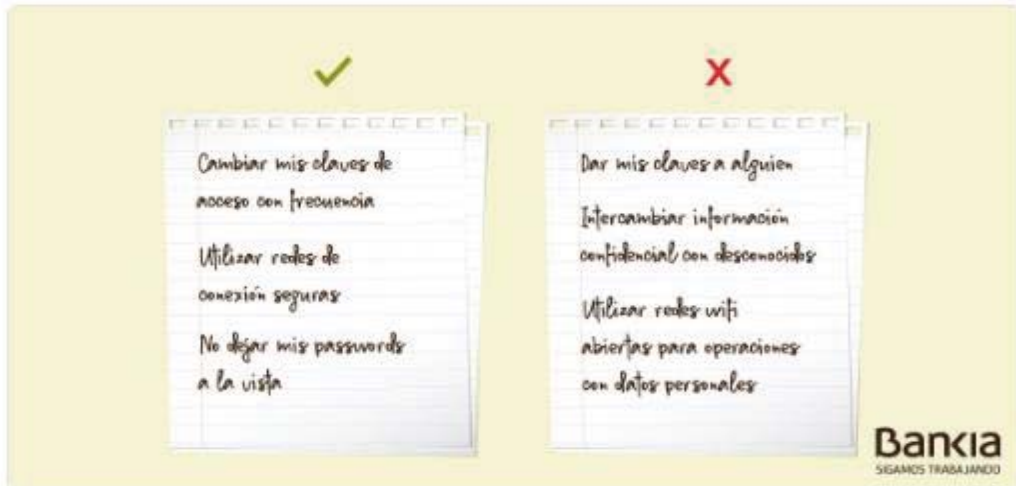 Cambiar mis claves de
acceso con frecuencia
Utilizar redes de
conexión seguras
No dejar mis passwords
a la vista
Dar mis claves a alguien
Intercambiar información
confidencial con desconocidos
Utilizar redes wifi
abiertas para operaciones
con datos personales
Bankia
SIGAMOS TRABAJANDO